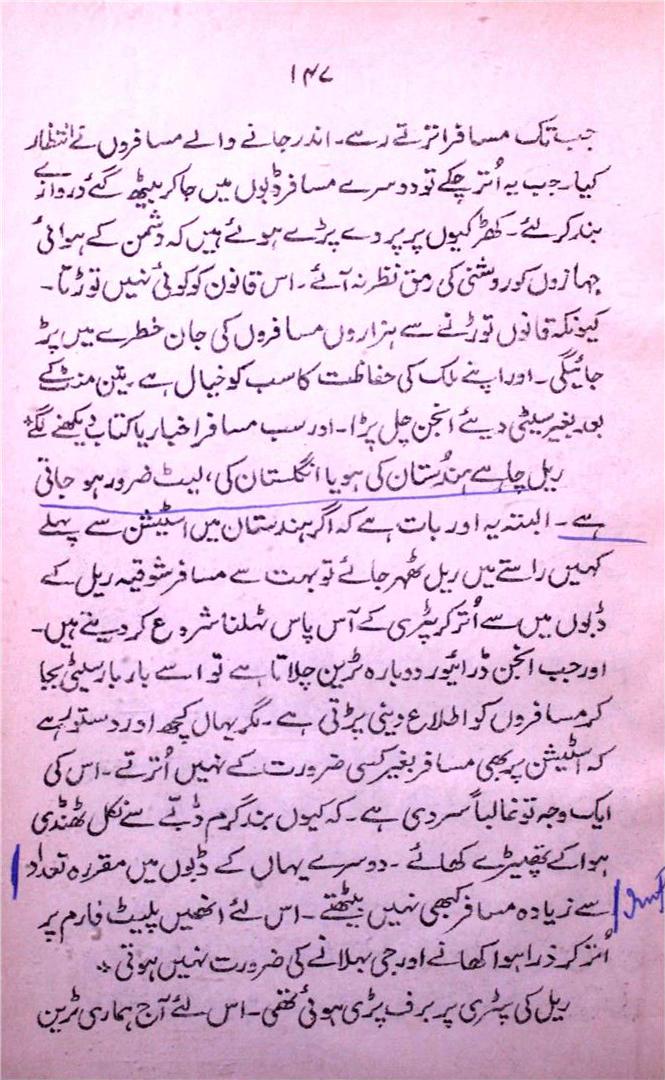 ۱۴۷
جب تک مسافر اترتے رہے۔ اندر جانے والے مسافروں نے انتظار
کیا۔ جب یہ اُتر چکے تو دوسرے مسافر ڈبوں میں جا کر بیٹھ گئے دروازے
بند کر لئے۔ کھڑکیوں پر پردے پڑے ہوئے ہیں کہ دشمن کے ہوائی
جہازوں کو روشنی کی رمق نظر نہ آئے۔ اس قانون کو کوئی نہیں توڑتا۔
کیونکہ قانون توڑنے سے ہزاروں مسافروں کی جان خطرے میں پڑ
جائیگی۔ اور اپنے ملک کی حفاظت کا سب کو خیال ہے۔ تین منٹ کے
بعد بغیر سیٹی دیئے انجن چل پڑا۔ اور سب مسافر اخبار یا کتاب دیکھنے لگے٭
ریل چاہے ہندُستان کی ہو یا انگلستان کی، لیٹ ضرور ہو جاتی
ہے۔ البتہ یہ اور بات ہے کہ اگر ہندستان میں اسٹیشن سے پہلے
کہیں راستے میں ریل ٹھہر جائے تو بہت سے مسافر شوقیہ ریل کے
ڈبوں میں سے اُتر کر پٹری کے آس پاس ٹہلنا شروع کر دیتے ہیں۔
اور جب انجن ڈرائیور دوبارہ ٹرین چلاتا ہے تو اسے بار بار سیٹی بجا
کر مسافروں کو اطلاع دینی پڑتی ہے۔ مگر یہاں کچھ اور دستور ہے
کہ اسٹیشن پر بھی مسافر بغیر کسی ضرورت کے نہیں اُترتے۔ اس کی
ایک وجہ تو غالباً سردی ہے۔ کہ کیوں بند گرم ڈبّے سے نکل ٹھنڈی
ہوا کے تھپیڑے کھائے۔ دوسرے یہاں کے ڈبوں میں مقررہ تعداد
سے زیادہ مسافر کبھی نہیں بیٹھتے۔ اس لئے انھیں پلیٹ فارم پر
اُتر کر ذرا ہوا کھانے اور جی بہلانے کی ضرورت نہیں ہوتی٭
ریل کی پٹری پر برف پڑی ہوئی تھی۔ اس لئے آج ہماری ٹرین